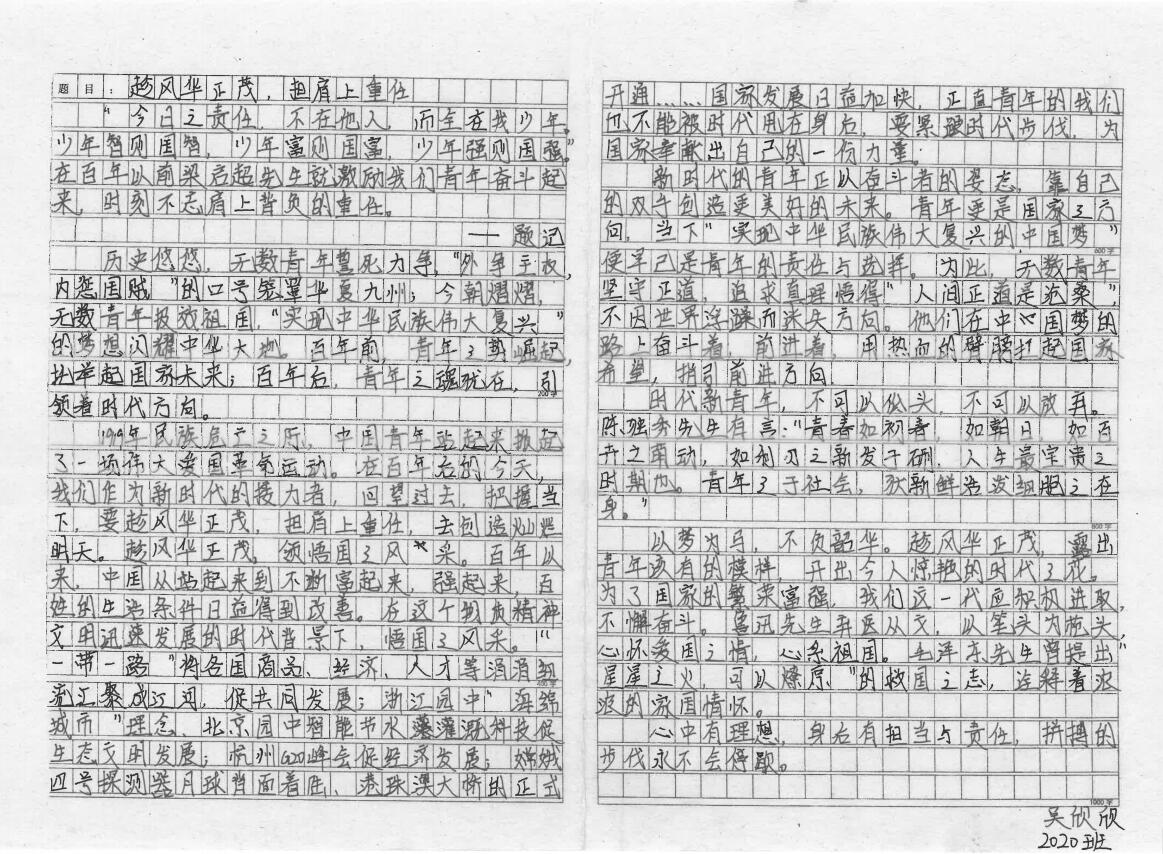 题目：趁风华正茂，担肩上重任
“今日之责任，不在他人，而全在我少年。
少年智则国智，少年富则国富，少年强则国强。”
在百年以前梁启超先生就激励我们青年奋斗起
来，时刻不忘肩上背负的重任。
——题记
历史悠悠，无数青年誓死力争，“外争主权，
内惩国贼”的口号笼罩华夏九州；今朝熠熠，
无数青年报效祖国，“实现中华民族伟大复兴”
的梦想闪耀中华大地。百年前，青年之势崛起，
扛举起国家未来；百年后，青年之魂犹在，引
200字
领着时代方向。
1919年民族危亡之际，中国青年站起来掀起
了一场伟大爱国革命运动。在百年后的今天，
我们作为新时代的接力者，回望过去，把握当
下，要趁风华正茂，担肩上重任，去创造灿烂
明天。趁风华正茂，领悟国之风采。百年以
来，中国从站起来到不断富起来，强起来，百
姓的生活条件日益得到改善。在这个物质精神
文明迅速发展的时代背景下，悟国之风采。“
一带一路”将各国商品、经济、人才等涓涓细
400字
流汇聚成江河，促共同发展；浙江园中“海绵
城市”理念、北京园中智能节水灌溉科技促
生态文明发展；杭州G20峰会促经济发展；嫦娥
四号探测器月球背面着陆、港珠澳大桥的正式
开通……国家发展日益加快，正直青年的我们
也不能被时代甩在身后，要紧跟时代步伐，为
国家奉献出自己的一份力量。
新时代的青年正以奋斗者的姿态，靠自己
的双手创造更美好的未来。青年更是国家之方
向，当下“实现中华民族伟大复兴的中国梦”
600字
便早已是青年的责任与选择。为此，无数青年
坚守正道，追求真理悟得“人间正道是沧桑”，
不因世界浮躁而迷失方向。他们在中国梦的
路上奋斗着，前进着，用热血的臂膀扛起国家
希望，指引前进方向。
时代新青年，不可以低头，不可以放弃。
陈独秀先生有言：“青春如初春，如朝日，如百
卉之萌动，如利刃之新发于硎，人生最宝贵之
时期也。青年之于社会，犹新鲜活发细胞之在
身。”
800字
以梦为马，不负韶华。趁风华正茂，露出
青年该有的模样，开出令人惊艳的时代之花。
为了国家的繁荣富强，我们这一代应积极进取，
不懈奋斗。鲁迅先生弃医从文，以笔头为枪头，
心怀爱国之情，心系祖国。毛泽东先生曾提出“
星星之火，可以燎原”的救国之志，诠释着浓
浓的家国情怀。
心中有理想，身后有担当与责任，拼搏的
步伐永不会停歇。
1000字
吴欣欣
2020班